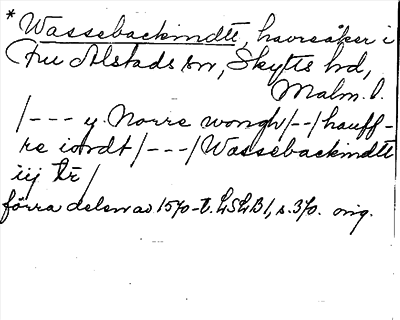 * Wassebackmdtt, havreåker i
Fru Alstads sn, Skytts hd,
Malm. l.
/--- y Norre wongh/--/hauff-
re iordt/---/Wassebackmdtt
iij
förra delen av 1570-t. LSLB1, s. 370. orig.